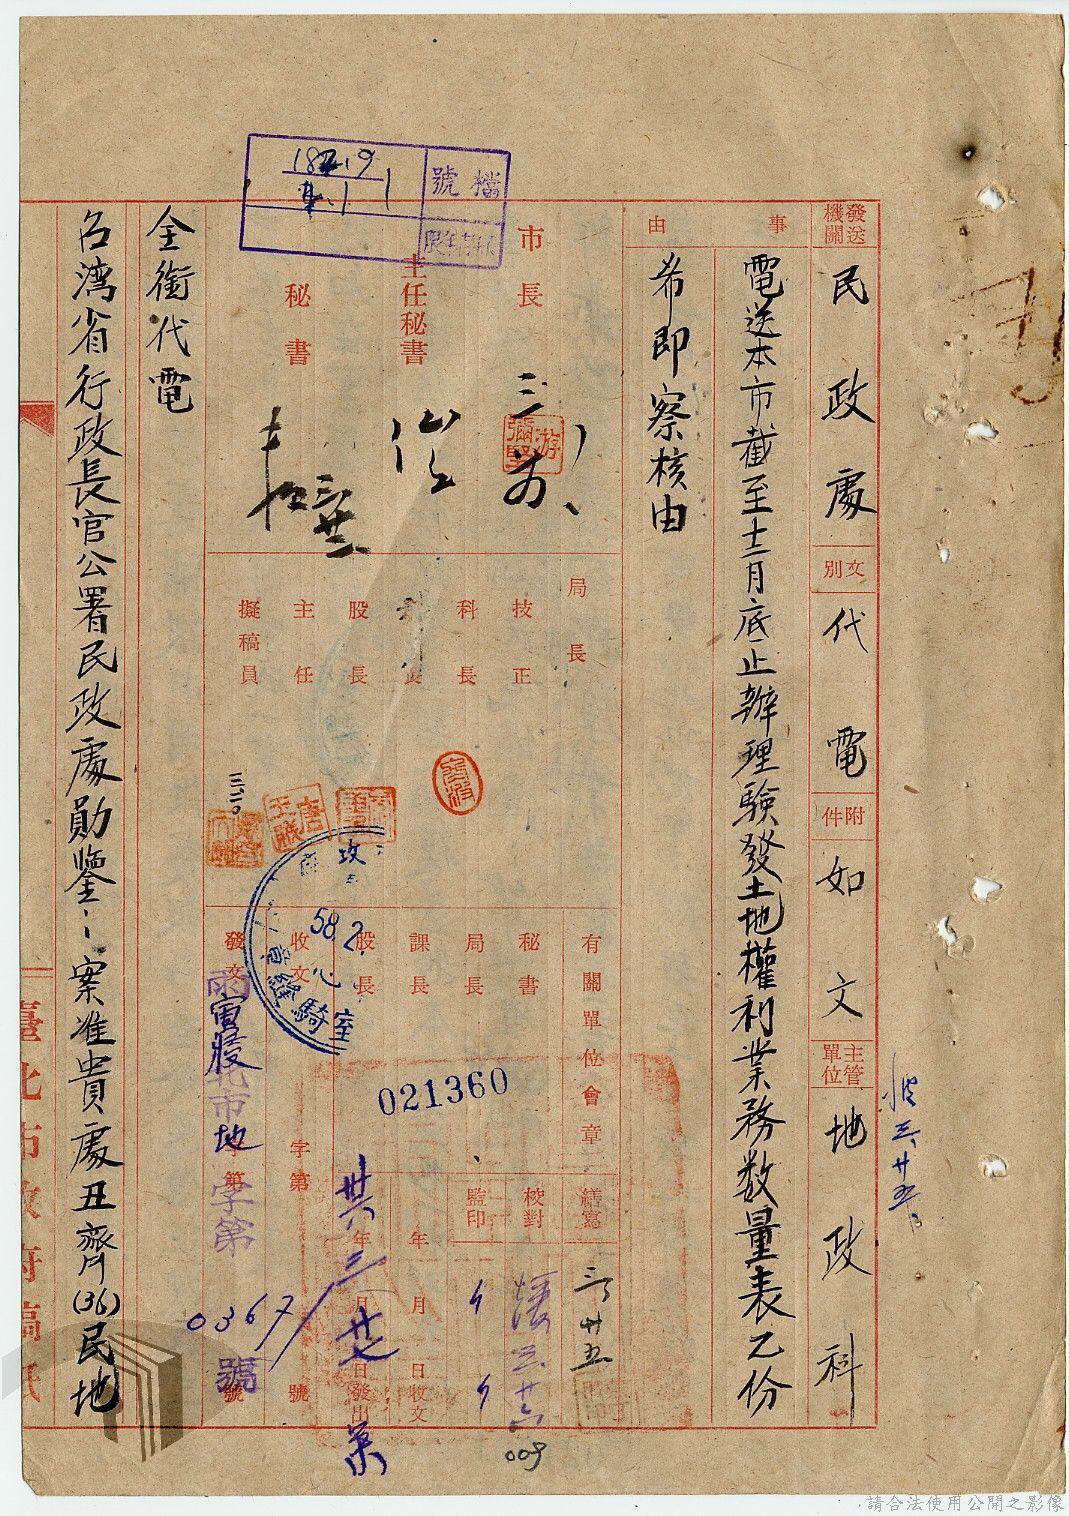 發送機關 民政處 文別 代電 附件 如文 主管單位 地政科
事由
電送本市截至十二月底止辦理驗發土地權利業務數量表乙份
希即察核由
市長
游彌堅
主任秘書
秘書
局長
技正
科長
股長
主任
擬稿員
有關單位會章
秘書
局長
課長
股長
繕寫 三 廿五
校對 三 廿六
監印
年 月 日收文
卅六年三月廿七日發出
收文 字第 號
發文 字第 0367 號
寅 北市地字第 號
021360
檔號
58.2.
騎縫章
全銜代電
台灣省行政長官公署民政處勛鑒：案准貴處丑齊(36)民地
臺北市政府稿紙
三 廿五
009
請合法使用公開之影像